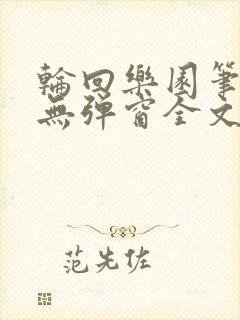 輪回樂園筆
無彈窗全文
范先佐